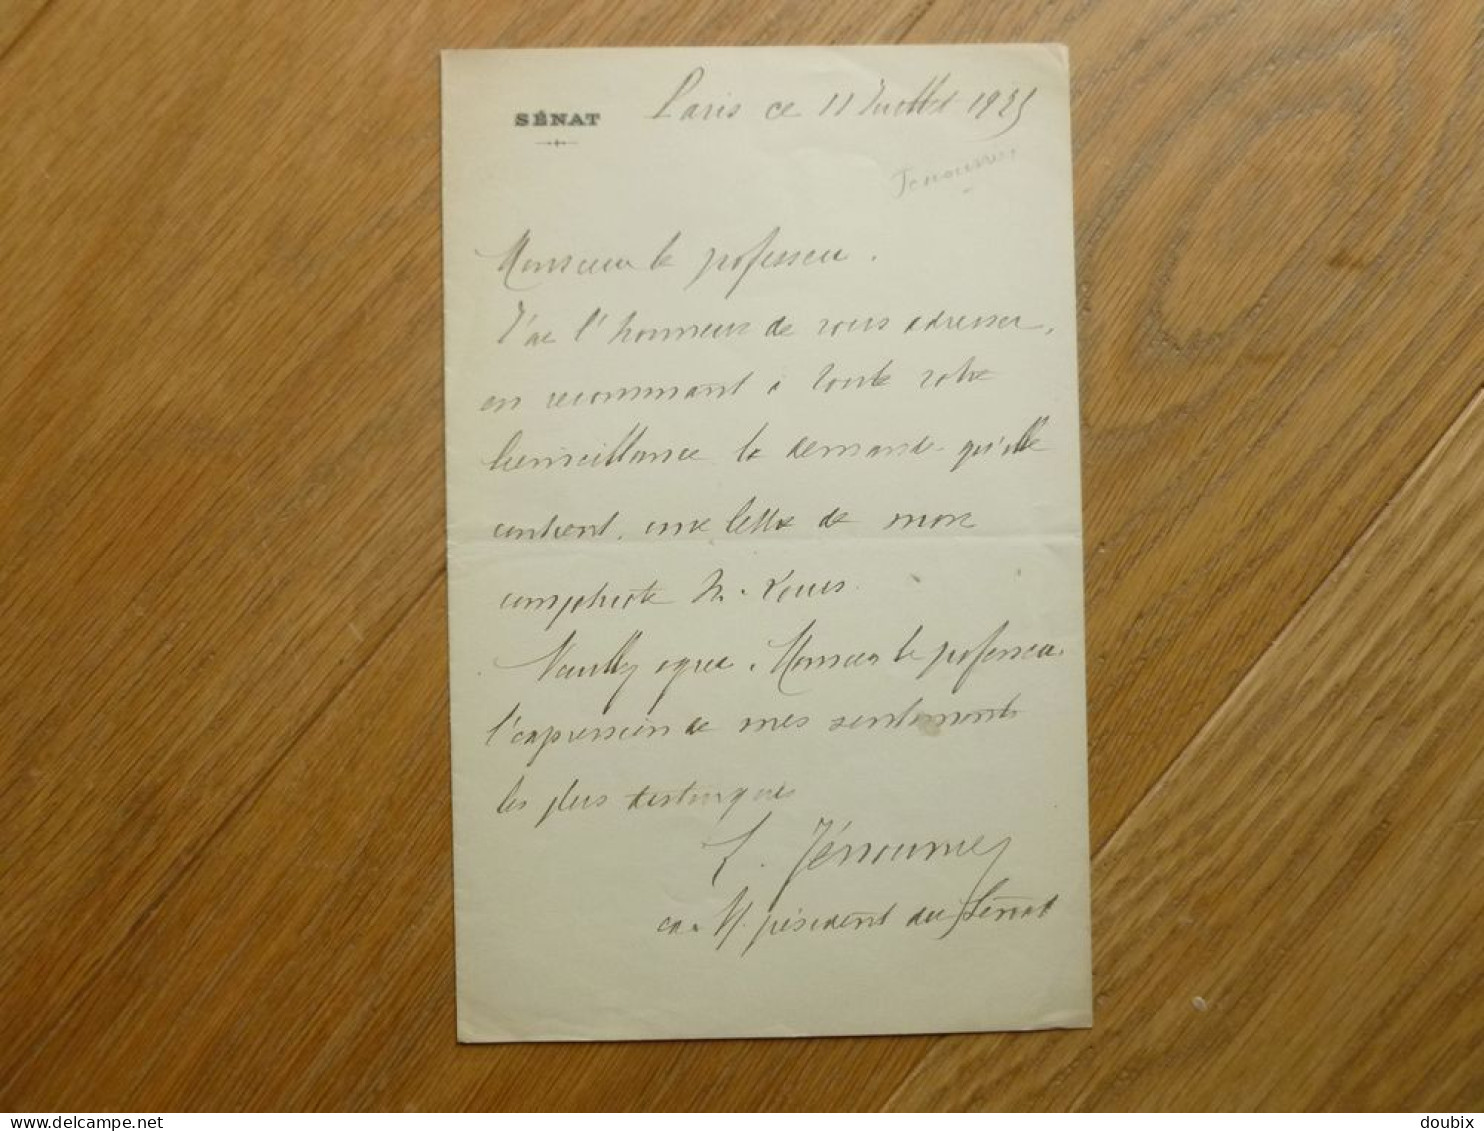 SÉNAT
Paris ce 11 Juillet 1925
Jenouvrier
Monsieur le professeur.
J'ai l'honneur de vous adresser,
en recommandant à toute votre
bienveillance la demande qu'elle
contient, une lettre de mon
compatriote M.
Veuillez agréer, Monsieur le professeur,
l'expression de mes sentiments
les plus distingués
L. Jénouvrier
V. président du Sénat
www.delcampe.net
doubix